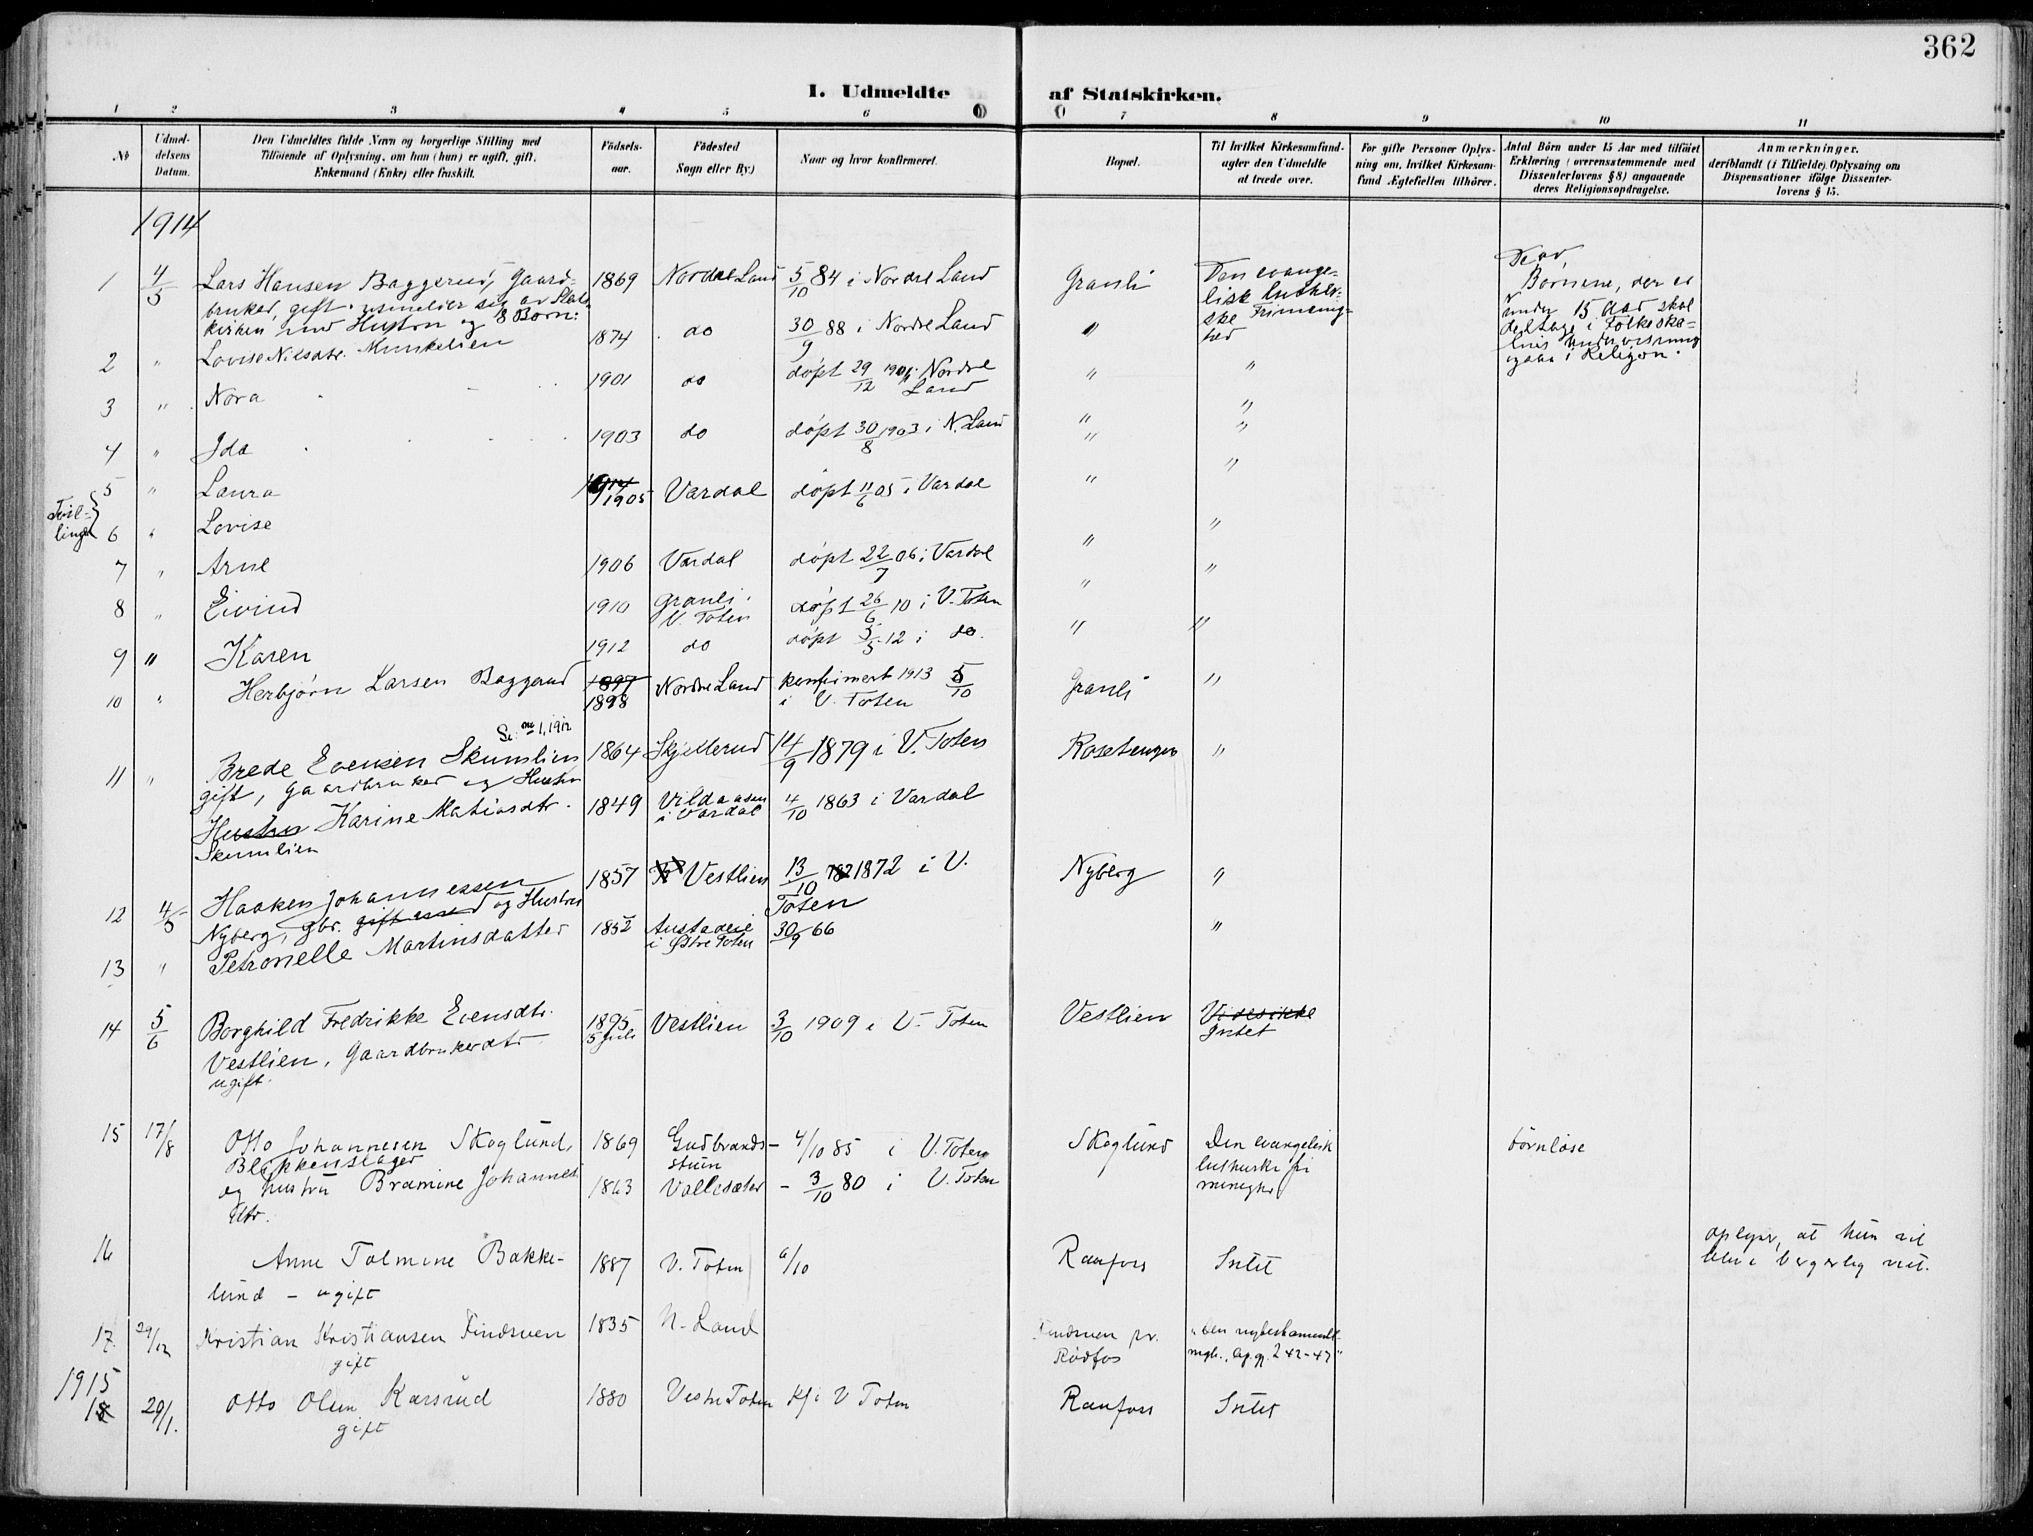 362
I. Udmeldte af Statskirken.
1 2 3 4 5 6 7 8 9 10 11
No
Udmeldelsens Datum.
Den Udmeldtes fulde Navn og borgerlige Stilling med
Tilføiende af Oplysning, om han (hun) er ugift, gift,
Enkemand (Enke) eller fraskilt.
Fødselsaar.
Fødested
Sogn eller By.)
Naar og hvor konfirmeret.
Bopæl.
Til hvilket Kirkesamfund
agter den Udmeldte
at træde over.
For gifte Personer Oplysning om, hvilket Kirkesamfund Ægtefællen tilhører.
Antal Børn under 15 Aar med tilføiet
Erklæring (overensstemmende med
Dissenterlovens § 8) angaaende
deres Religionsopdragelse.
Anmærkninger.
deriblandt (i Tilfælde) Oplysning om
Dispensationer ifølge Dissenterlovens § 15.
1914
1 4/5 Lars Hansen Baggerud, Gaardbruker, gift, utmelder sig av Statskirken med Hustru og 8 Børn: 1869 Nordre Land 5/10 84 i Nordre Land Granli Den evangelisk lutherske Frimenighed
Børnene, der er
under 15 Aar skal
deltage i Folkeskolens Undervisning
ogsaa i Religion.
2 " Lovise Nilsdtr. Munkelien 1874 do 30/9 88 i Nordre Land " "
3 " Nora 1901 do døpt 29/12 1901 i Nordre Land " "
4 " Ida 1903 do døpt 30/8 1903 i N. Land " "
Tvillinger
5 " Laura 1905 Vardal døpt 11/6 05 i Vardal " "
6 " Lovise " "
7 " Arne 1906 Vardal døpt 22/7 06 i Vardal " "
8 " Eivind 1910 Granli V. Toten døpt 26/6 10 i V. Toten " "
9 " Karen 1912 do døpt 5/5 12 i do. " "
10 " Herbjørn Larsen Baggerud 1897 1898 Nordre Land konfirmert 1913 5/10 i V. Toten Granli "
11 " Brede Evensen Skumlien 1864 Skjellerud 14/9 1879 i V. Toten "
gift, Gaardbruker og Hustru
Hustru Karine Matiasdtr. 1849 i Vardal 4/10 1863 i Vardal
Skumlien
12 4/5 Haaken Johannessen 1857 Vestlien 13/10 1872 i V. Toten Nyberg "
Nyberg, gbr. og Hustru
13 " Petronelle Martinsdatter 1852 i Østre Toten 30/9 66 "
14 5/6 Borghild Fredrikke Evensdtr. 1895 5 Juli Vestlien 3/10 1909 i V. Toten Vestlien Vides ikke Intet
Vestlien, Gaardbrukerdtr
ugift.
15 17/8 Otto Johannesen Skoglund, 1869 Gudbrandsstuen - 4/10 85 i V. Toten Skoglund Den evangelisk lutherske frimenighed børnløse
Blokkenslager
og hustru Bramine Johannesdtr. 1863 Vollesæter - 3/10 80 i V. Toten
16 Anne Tolmine Bakkelund - ugift 1887 V. Toten 6/10 Raufoss Intet oplyser, at hun vil blive borgerlig viet.
17. 29/12 Kristian Kristiansen Findsveen 1835 N. Land Findsveen pr. Rødfos
gift
1915
18 29/1. Otto Olsen Karsrud 1880 Vestre Toten Kf i V Toten Raufoss Intet
gift